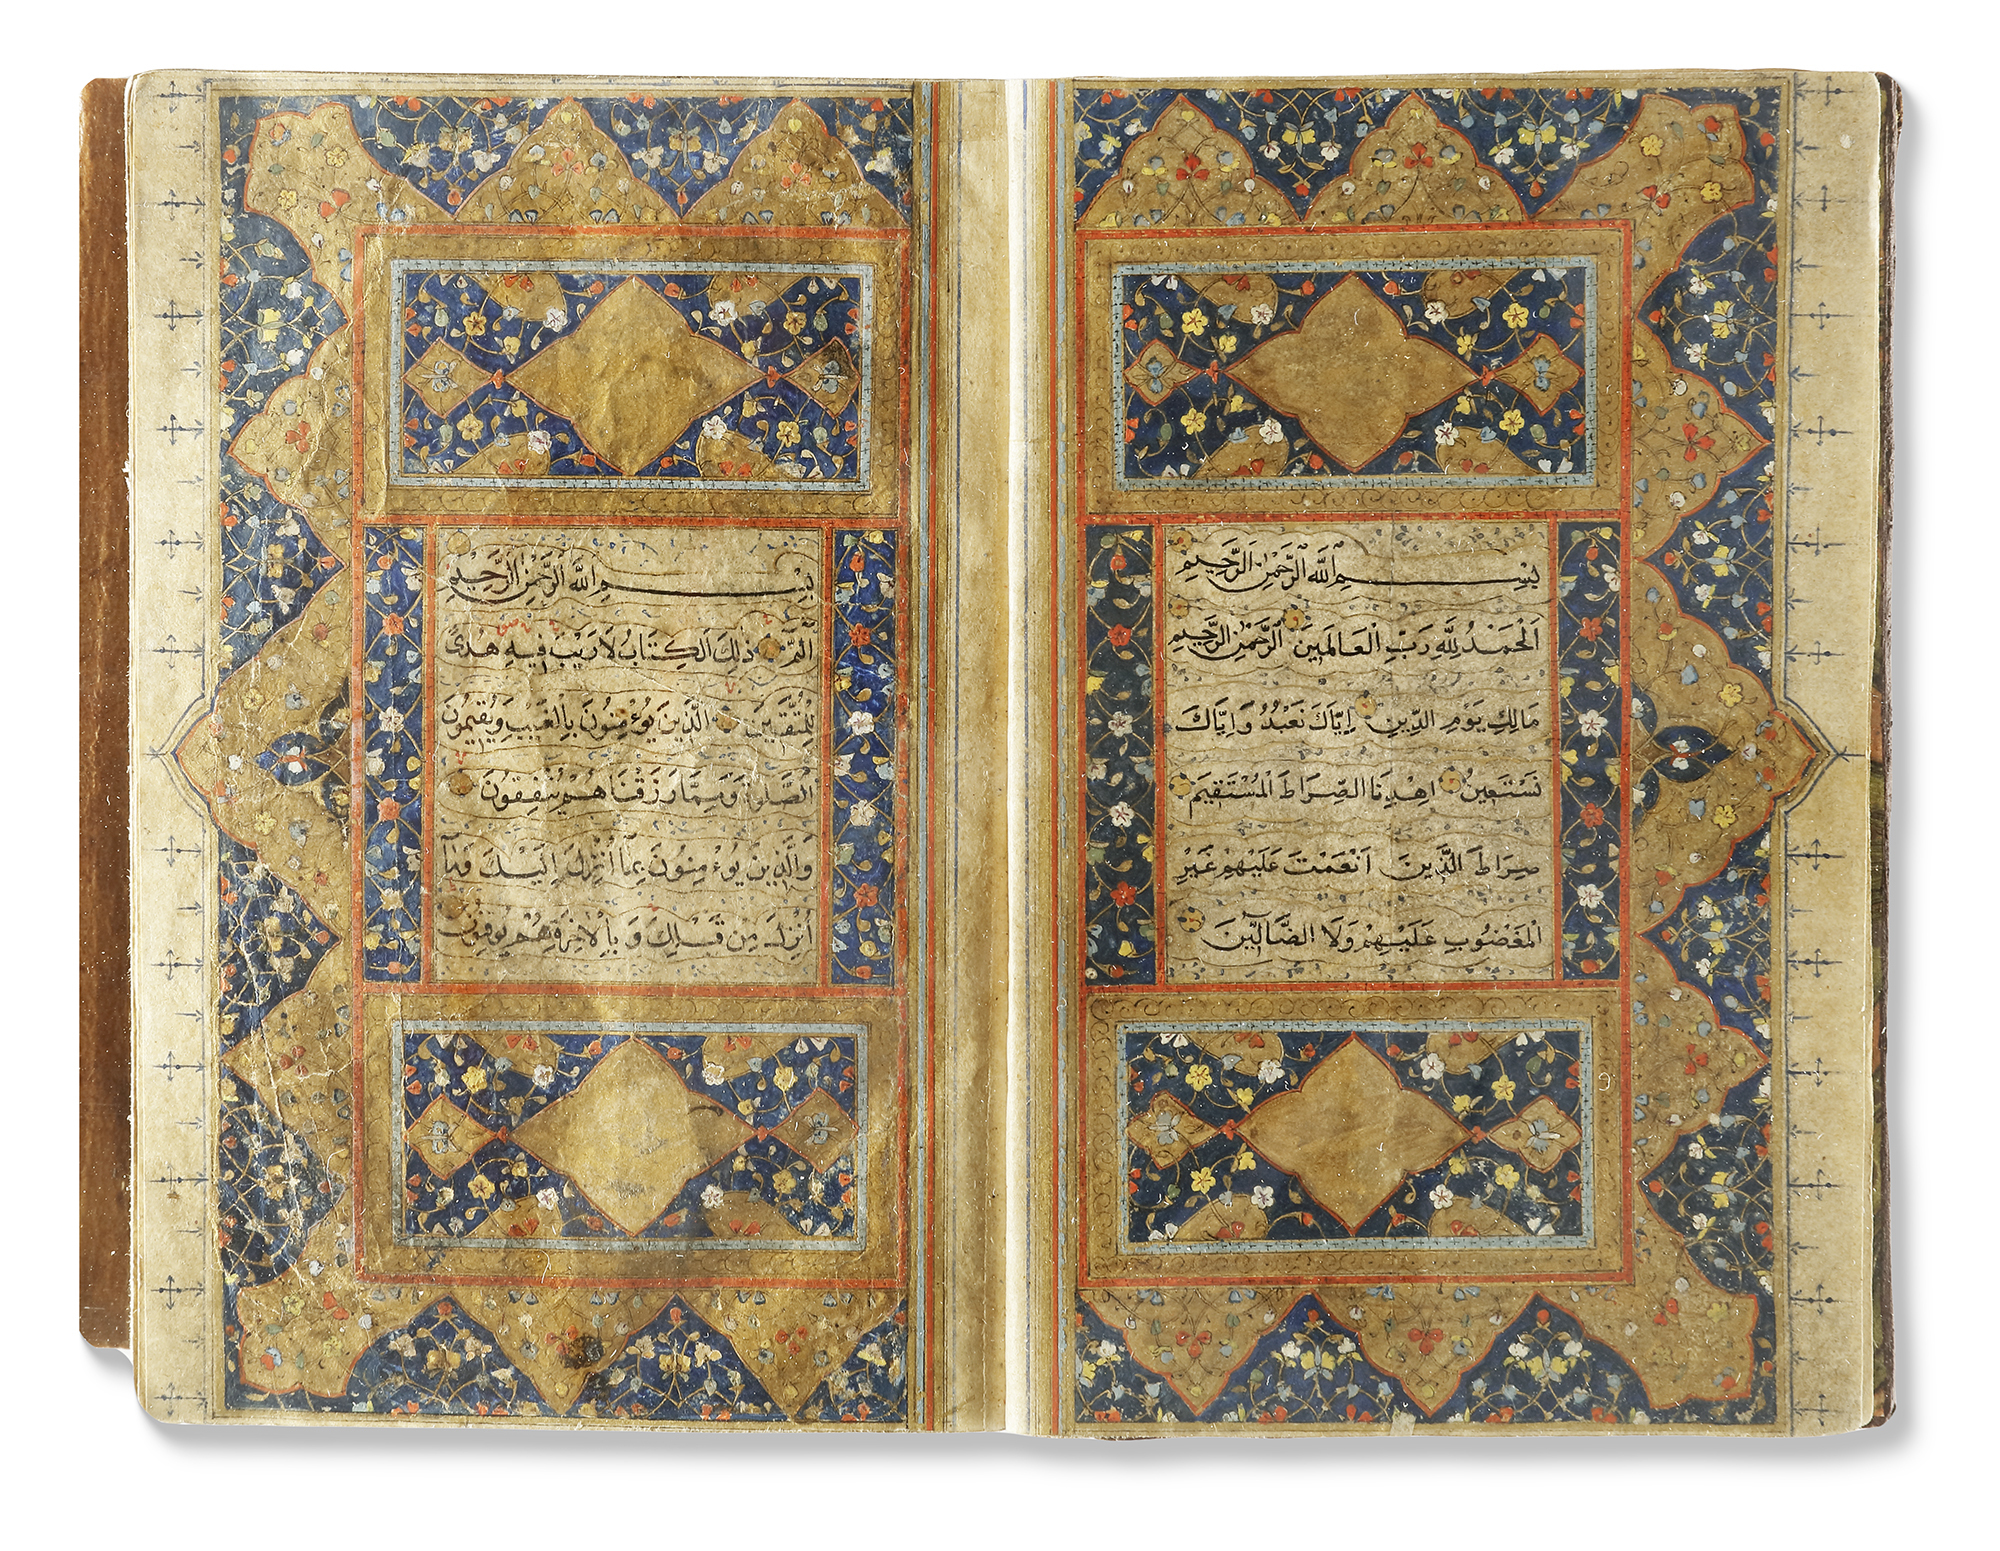 بِسْمِ اللَّهِ الرَّحْمَٰنِ الرَّحِيمِ
اَلْحَمْدُ لِلَّهِ رَبِّ الْعَالَمِينَ الرَّحْمٰنِ الرَّحِيمِ
مَالِكِ يَوْمِ الدِّينِ اِيَّاكَ نَعْبُدُ وَاِيَّاكَ
نَسْتَعِينُ اِهْدِنَا الصِّرَاطَ الْمُسْتَقِيمَ
صِرَاطَ الَّذِينَ اَنْعَمْتَ عَلَيْهِمْ غَيْرِ
الْمَغْضُوبِ عَلَيْهِمْ وَلَا الضَّالِّينَ
بِسْمِ اللَّهِ الرَّحْمٰنِ الرَّحِيمِ
الٓمٓ ذٰلِكَ الْكِتَابُ لَا رَيْبَ فِيهِ هُدًى
لِلْمُتَّقِينَ الَّذِينَ يُوءْمِنُونَ بِالْغَيْبِ وَيُقِيمُونَ
الصَّلٰوةَ وَمِمَّا رَزَقْنَاهُمْ يُنْفِقُونَ
وَالَّذِينَ يُوءْمِنُونَ بِمَا اُنْزِلَ اِلَيْكَ وَمَا
اُنْزِلَ مِنْ قَبْلِكَ وَبِالْاٰخِرَةِ هُمْ يُوقِنُونَ